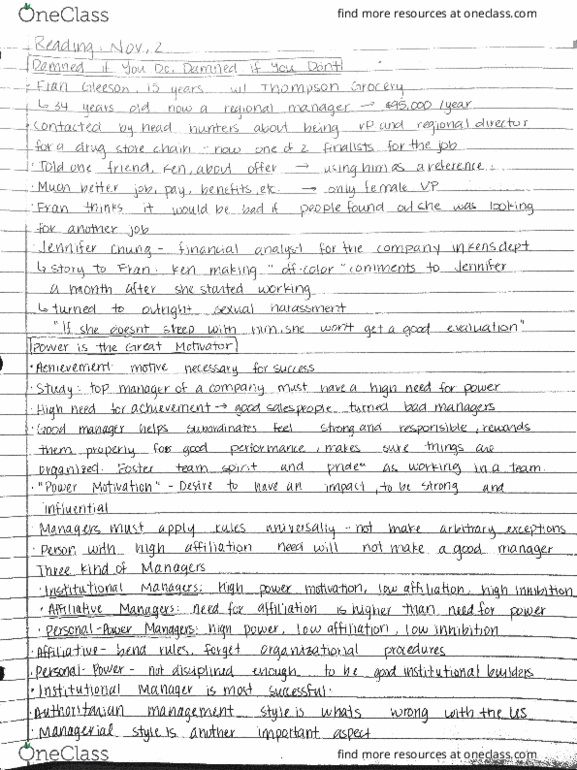 OneClass
find more resources at oneclass.com
Reading: Nov. 2
Damned if You Do, Damned if You Don't
· Fran Gleeson, 15 years w/ Thompson Grocery
↳ 34 years old now a regional manager → $95,000/year
· Contacted by head hunters about being VP and regional director
for a drug store chain - now one of 2 finalists for the job
· Told one friend, Ken, about offer → using him as a reference
· Much better job, pay, benefits, etc. → only female VP
· Fran thinks it would be bad if people found out she was looking
for another job
· Jennifer Chung - financial analyst for the company in Kens dept
↳ story to Fran: Ken making "off-color" comments to Jennifer
a month after she started working
↳ turned to outright sexual harassment
"If she doesnt sleep with him, she won't get a good evaluation"
Power is the Great Motivator
· Achievement: motive necessary for success
· Study: top manager of a company must have a high need for power
· High need for achievement → good salespeople turned bad managers
· Good manager helps subordinates feel strong and responsible, rewards
them properly for good performance, makes sure things are
organized. Foster team spirit and pride as working in a team.
· "Power Motivation" - Desire to have an impact, to be strong and
influential
· Managers must apply rules universally - not make arbitrary exceptions
· Person with high affiliation need will not make a good manager
Three kind of Managers
· Institutional Managers: high power motivation, low affiliation, high inhibition
· Affiliative Managers: need for affiliation is higher than need for power
· Personal-Power Managers: high power, low affiliation, low inhibition
· Affiliative - bend rules, forget organizational procedures
· Personal-Power - not disciplined enough to be good institutional builders
· Institutional Manager is most successful
· Authoritarian management style is whats wrong with the US
· Managerial style is another important aspect
OneClass
find more resources at oneclass.com